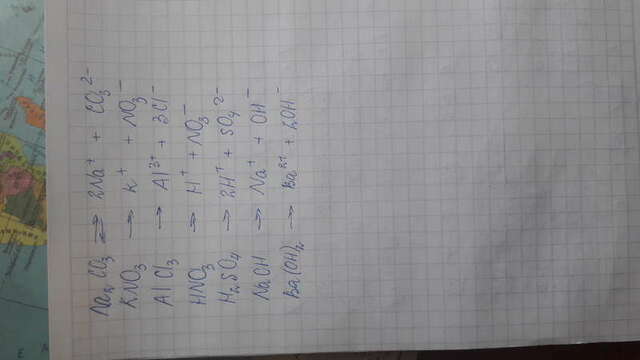 Na₂CO₃ ⇌ 2Na⁺ + CO₃²⁻
KNO₃ → K⁺ + NO₃⁻
AlCl₃ → Al³⁺ + 3Cl⁻
HNO₃ → H⁺ + NO₃⁻
H₂SO₄ → 2H⁺ + SO₄²⁻
NaOH → Na⁺ + OH⁻
Ba(OH)₂ → Ba²⁺ + 2OH⁻